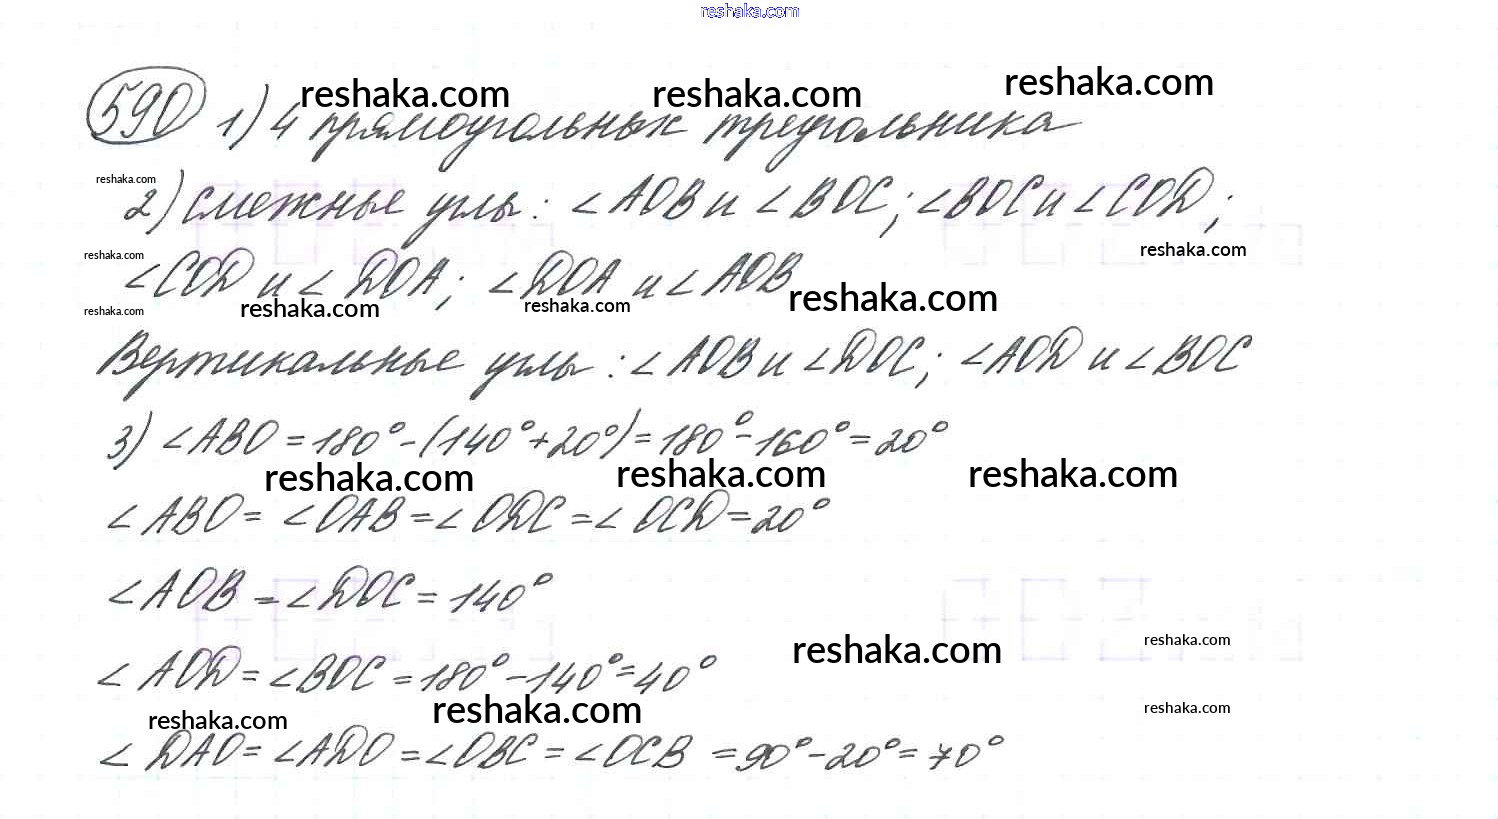 reshaka.com
590 1) 4 прямоугольных треугольника
reshaka.com reshaka.com reshaka.com
reshaka.com
2) Смежные углы: ∠AOB и ∠BOC; ∠BOC и ∠COD;
reshaka.com reshaka.com
∠COD и ∠DOA; ∠DOA и ∠AOB
reshaka.com reshaka.com reshaka.com reshaka.com
Вертикальные углы: ∠AOB и ∠DOC; ∠AOD и ∠BOC
3) ∠ABO = 180° - (140° + 20°) = 180° - 160° = 20°
reshaka.com reshaka.com reshaka.com
∠ABO = ∠OAB = ∠ODC = ∠OCD = 20°
∠AOB = ∠DOC = 140°
reshaka.com reshaka.com
∠AOD = ∠BOC = 180° - 140° = 40°
reshaka.com reshaka.com reshaka.com
∠DAO = ∠ADO = ∠OBC = ∠OCB = 90° - 20° = 70°